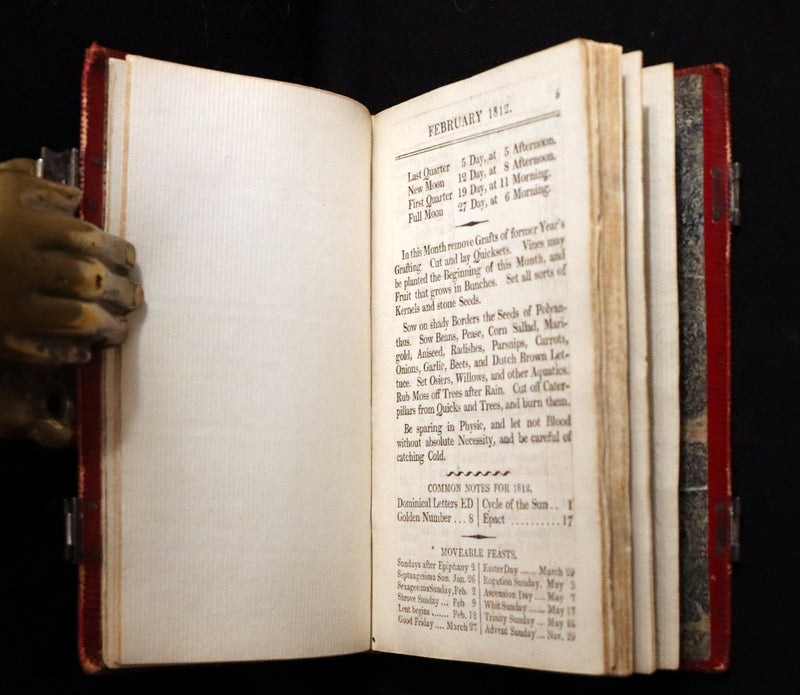 5
FEBRUARY 1812.
Last Quarter 5 Day, at 5 Afternoon.
New Moon 12 Day, at 8 Afternoon.
First Quarter 19 Day, at 11 Morning.
Full Moon 27 Day, at 6 Morning.
In this Month remove Grafts of former Year's
Grafting. Cut and lay Quicksets. Vines may
be planted the Beginning of this Month, and
Fruit that grows in Bunches. Set all sorts of
Kernels and stone Seeds.
Sow on shady Borders the Seeds of Polyan-
thus. Sow Beans, Pease, Corn Sallad, Mari-
gold, Aniseed, Radishes, Parsnips, Carrots,
Onions, Garlic, Beets, and Dutch Brown Let-
tuce. Set Osiers, Willows, and other Aquatics.
Rub Moss off Trees after Rain. Cut off Cater-
pillars from Quicks and Trees, and burn them.
Be sparing in Physic, and let not Blood
without absolute Necessity, and be careful of
catching Cold.
COMMON NOTES FOR 1812.
Dominical Letters ED | Cycle of the Sun .. 1
Golden Number ... 8 | Epact .......... 17
MOVEABLE FEASTS.
Sundays after Epiphany 2 | Easter Day ...... March 29
Septuagesima Sun. Jan. 26 | Rogation Sunday, May 3
Sexagesima Sunday, Feb. 2 | Ascension Day .... May 7
Shrove Sunday ... Feb. 9 | Whit Sunday ...... May 17
Lent begins ....... Feb. 12 | Trinity Sunday ... May 24
Good Friday .... March 27 | Advent Sunday ... Nov. 29